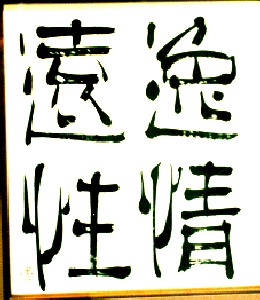 逸情
遠性